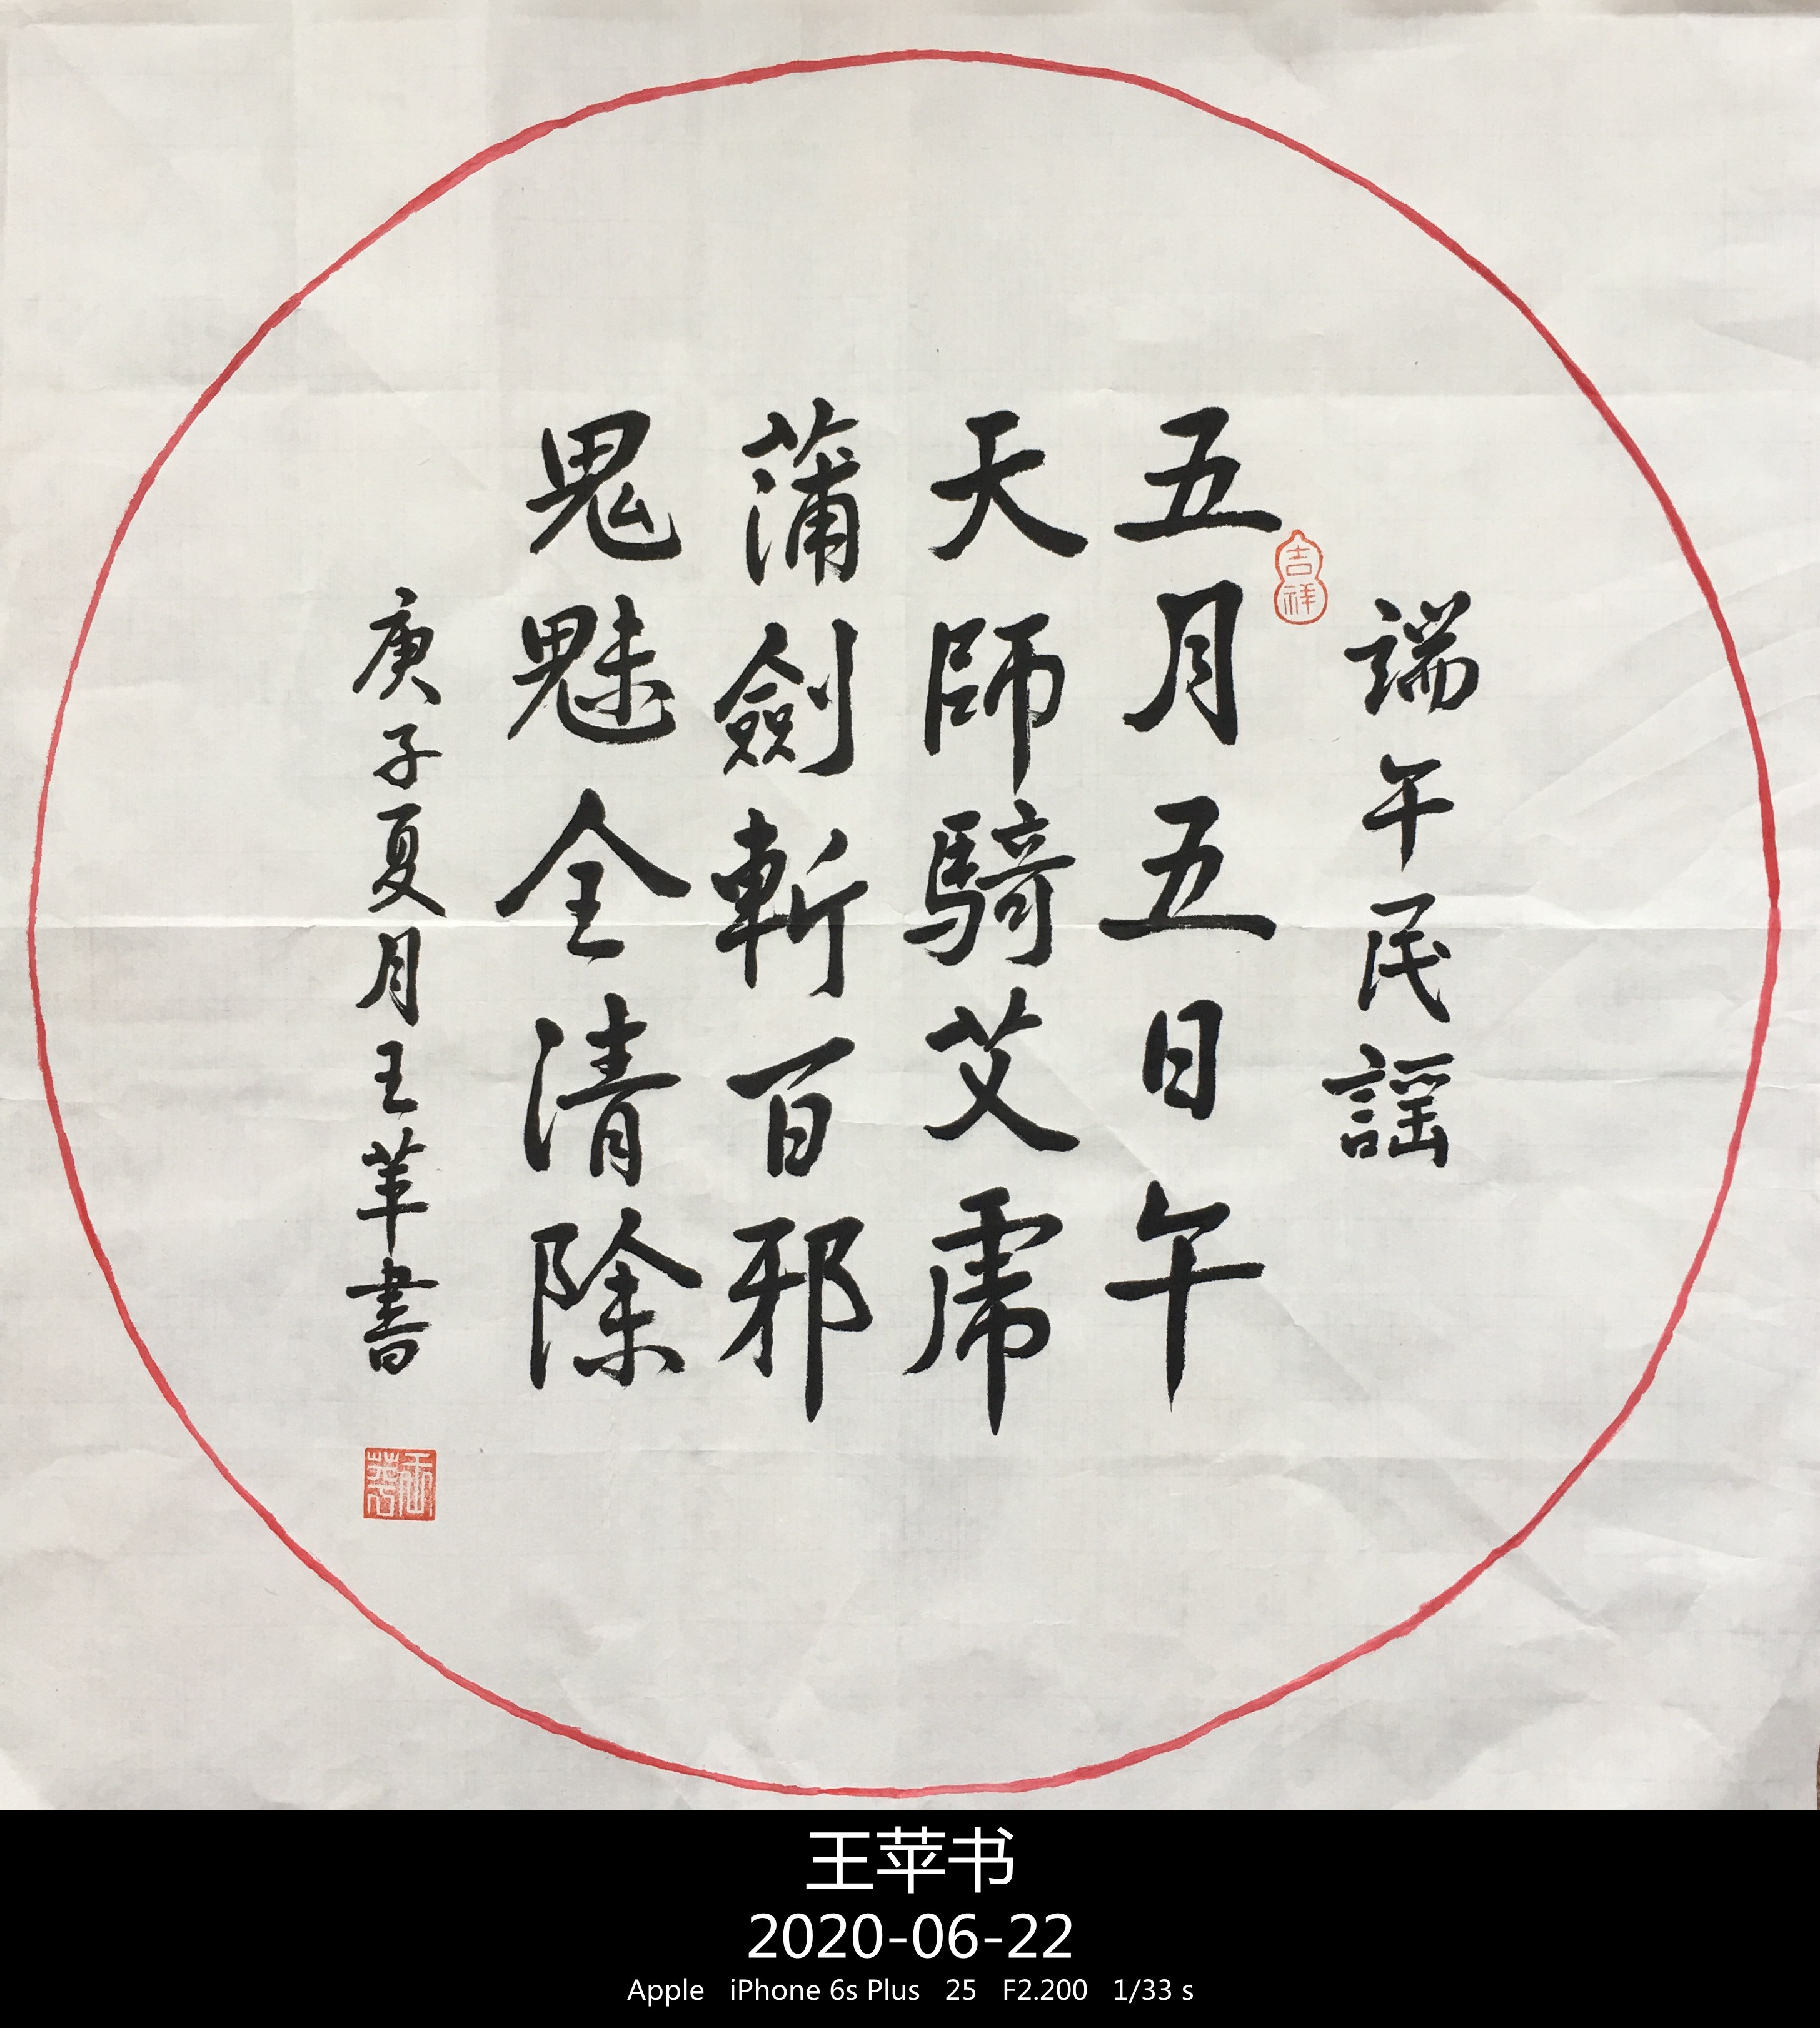 端午民謡
吉祥
五月五日午
天師騎艾虎
蒲劍斬百邪
鬼魅全清除
庚子夏月王苹書
王苹书
2020-06-22
Apple iPhone 6s Plus 25 F2.200 1/33 s